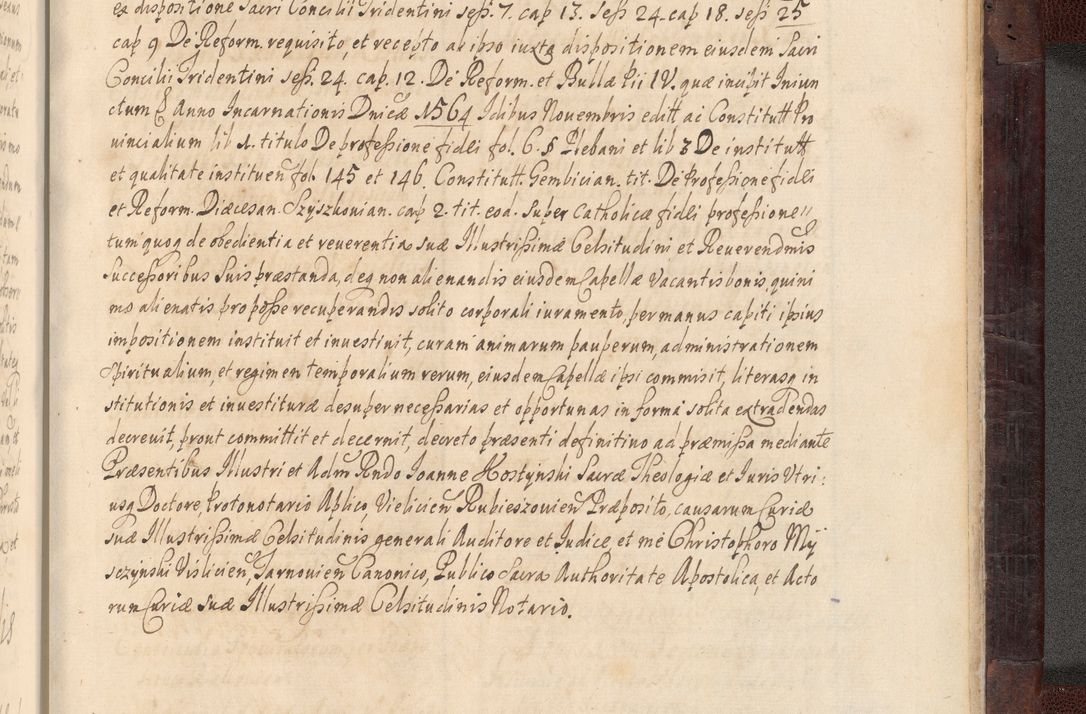 ex dispositione Sacri Concilii Tridentini seß. 7. cap 13. Seß 24. cap 18. seß 25
cap 9 De Reform. requisito, et recepto ac ipso iuxta dispositionem eiusdem Sacri
Concilii Tridentini seß. 24. cap. 12. De Reform. et Bullæ Pii IV. quæ incipit Iniun
ctum &c Anno Incarnationis Dnicæ 1564 Idibus Novembris editt ac Constitutt Pro
vincialium lib 1. titulo De professione fidei fol. 6. § Plebani et lib 3 De institutt
et qualitate instituen fol. 145 et 146. Constitutt. Gembician. tit. De Professione fidei
et Reform. Diæcesan. Szyszkovian. cap 2. tit. eod. super Catholicæ fidei professione //
tum quoq de obedientia et reverentia suæ Illustrissimæ Celsitudini et Reverendmis
Successoribus Suis præstanda, deq non alienandis eiusdem Capellæ Vacantis bonis, quini
mo alienatis pro posse recuperandis solito corporali iuramento, per manus capiti ipsius
impositionem instituit et investivit, curam animarum pauperum, administrationem
Spiritualium, et regimen temporalium rerum, eiusdem Capellæ ipsi commisit, literasq in
stitutionis et investituræ desuper necessarias et opportunas in forma solita extradendas
decrevit, prout committit et decernit, decreto præsenti definitivo ad præmissa mediante
Præsentibus Illustri et Adm Rndo Ioanne Hostynski Sacræ Theologiæ et Iuris Utri:
usq Doctore, Protonotario Aplico, Vielicien Rubieszovien Præposito, causarum Curiæ
suæ Illustrissimæ Celsitudinis generali Auditore et Iudice, et me Christophoro My
sczynski Vislicien, Tarnovien Canonico, Publico Sacra Authoritate Apostolica, et Acto
rum Curiæ suæ Illustrissimæ Celsitudinis Notario.